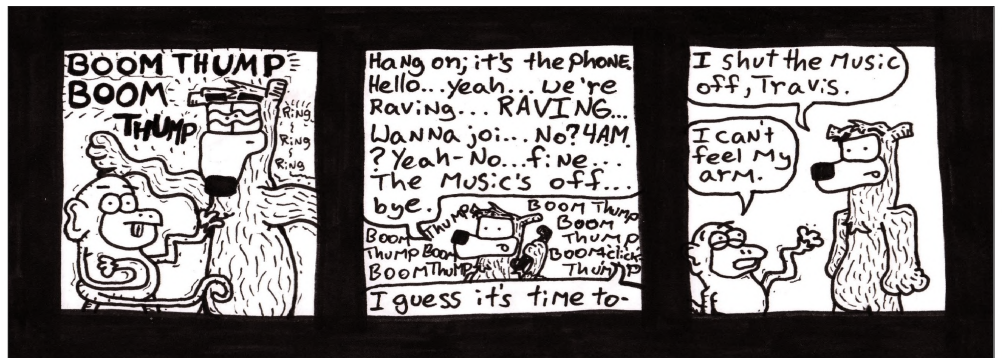 BOOM THUMP
BOOM
THUMP
Ring
Ring
Ring
Hang on; it's the PHONE.
Hello...Yeah... We're
Raving... RAVING...
Wanna joi... No? 4AM
? Yeah-No...fine...
The Music's off...
bye.
THUMP
BOOM
THUMP BOOM
BOOM THUMP
BOOM THUMP
BOOM
THUMP
BOOM click
THUMP
I guess it's time to-
I shut the Music
off, Travis.
I can't
feel My
arm.